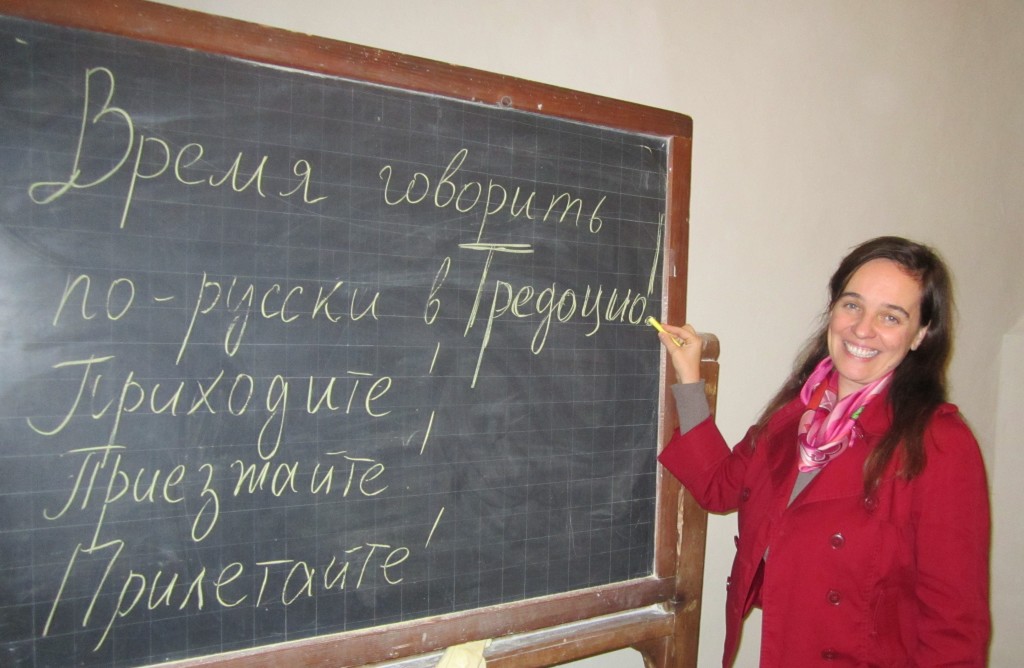 Время говорить
по-русски в Тредоцио!
Приходите!
Приезжайте!
Прилетайте!